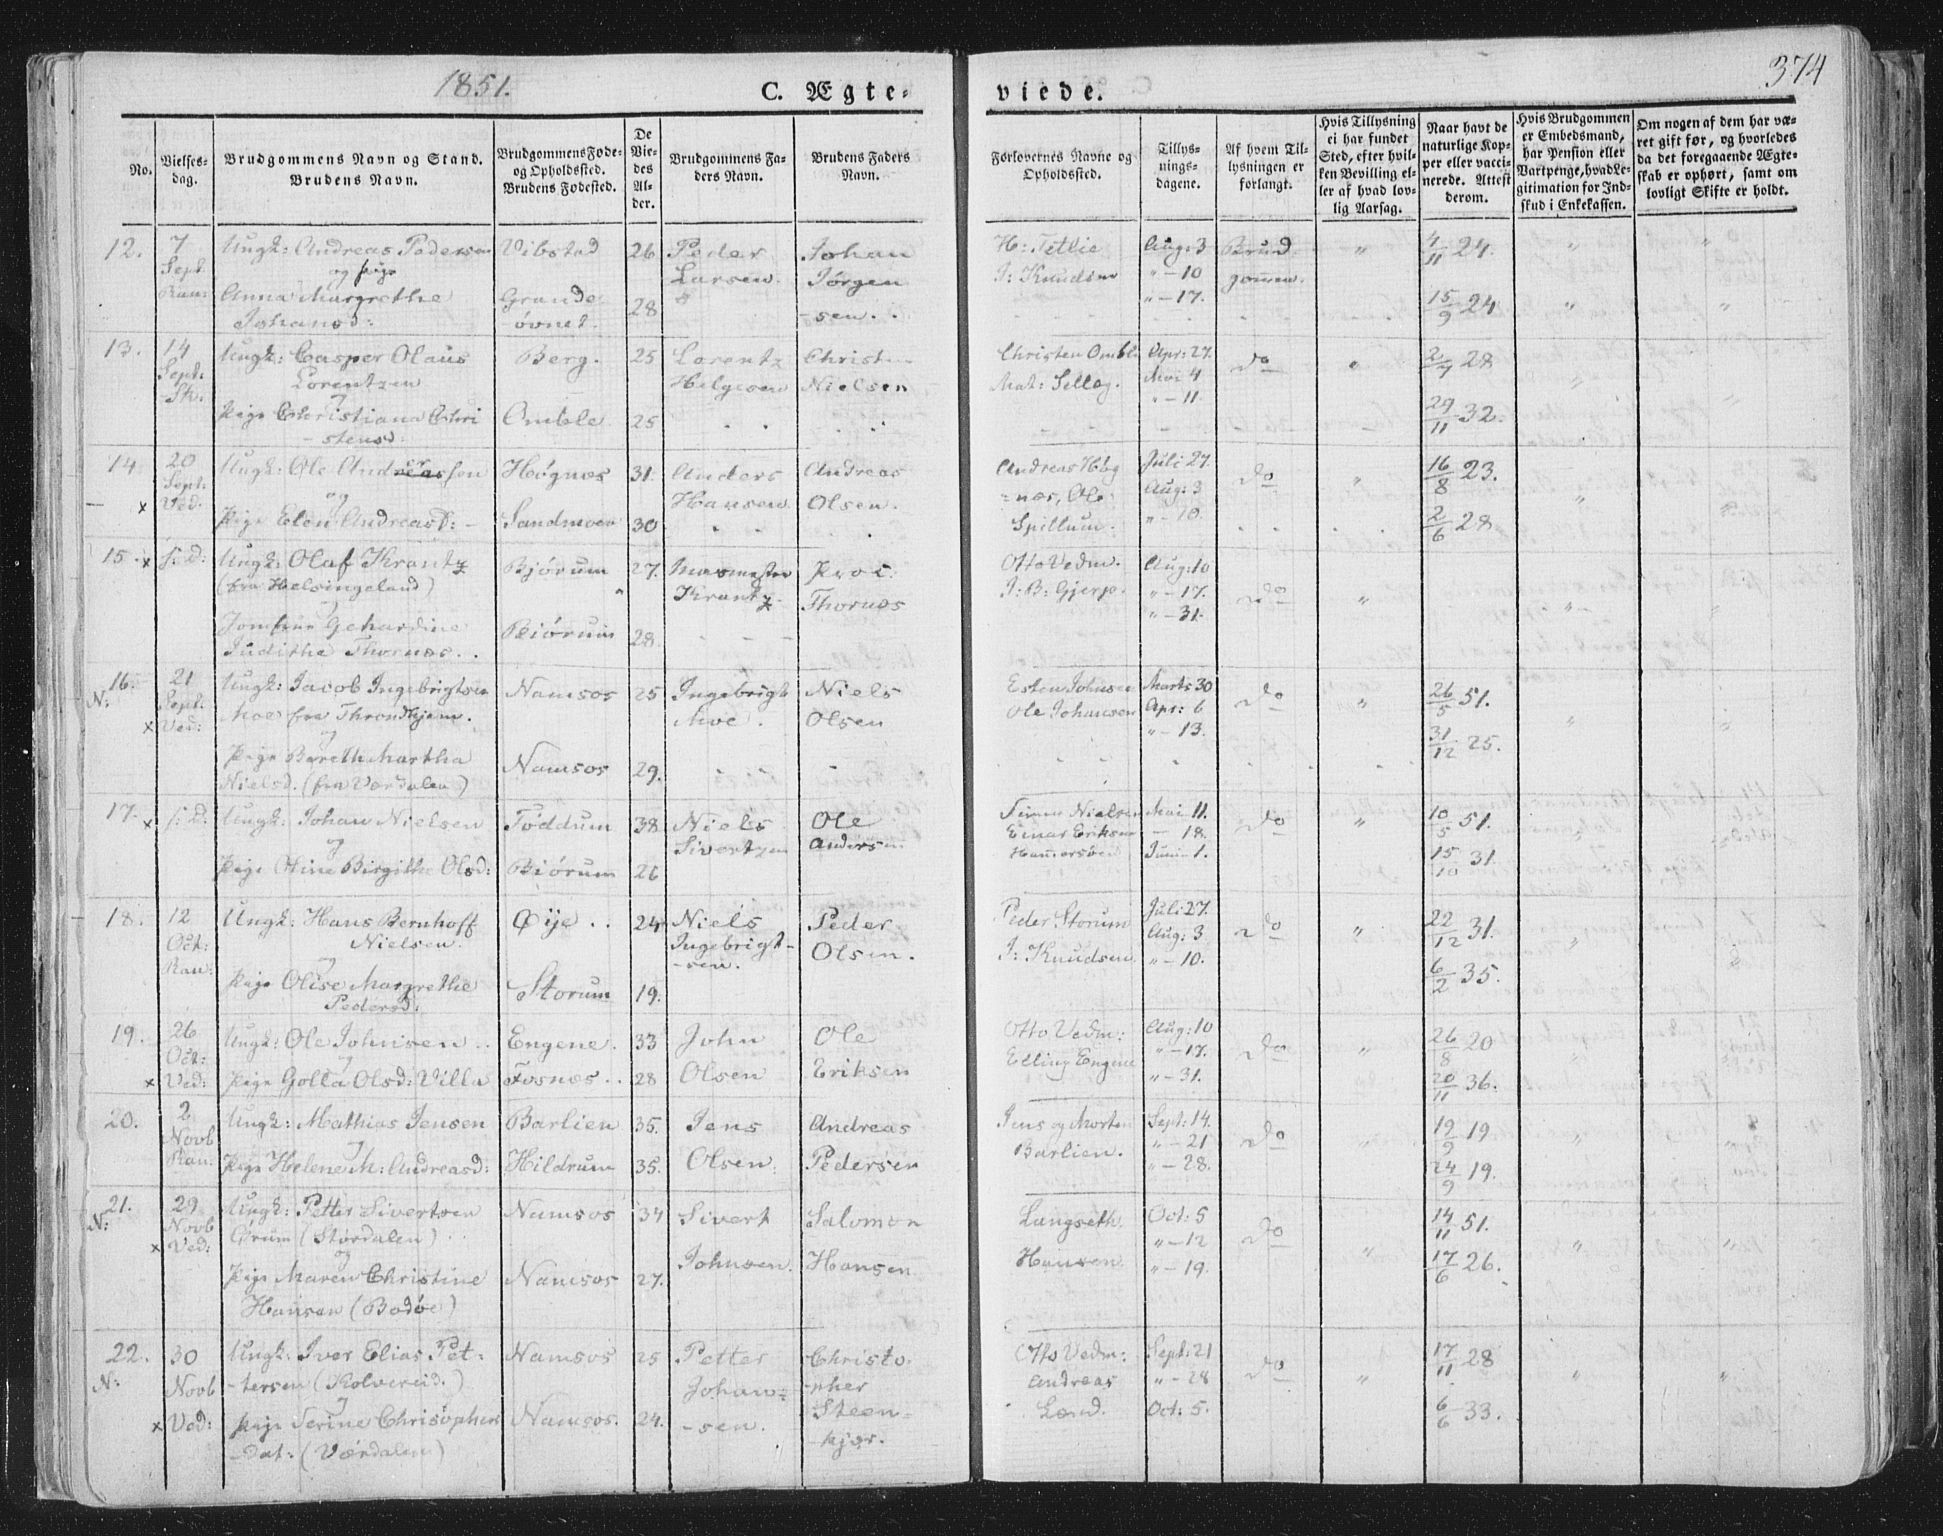 1851.
C. Ægte-
viede.
374
No.
Vielses-
dag.
Brudgommens Navn og Stand.
Brudens Navn.
Brudgommens Føde-
og Opholdssted.
Brudens Fødested.
De
Vie-
des
Al-
der.
Brudgommens Fa-
ders Navn.
Brudens Faders
Navn.
Forlovernes Navne og
Opholdssted.
Tillys-
nings-
dagene.
Af hvem Til-
lysningen er
forlangt.
Hvis Tillysning
ei har fundet
Sted, efter hvil-
ken Bevilling el-
ler af hvad lov-
lig Aarsag.
Naar havt de
naturlige Kop-
per eller vacci-
nerede. Attest
derom.
Hvis Brudgommen
er Embedsmand,
har Pension eller
Vartpenge, hvad Le-
gitimation for Ind-
skud i Enkekassen.
Om nogen af dem har væ-
ret gift før, og hvorledes
da det foregaaende Ægte-
skab er ophørt, samt om
lovligt Skifte er holdt.
12. 7 Ungk: Andreas Pedersen Vibstad 26 Peder Johan H: Tetlie Aug: 3 Brud- " 4/11 24. " "
Sept og pige Larsen. Jørgen J: Knudsen " - 10 gommen.
Ran: Anna Margrethe Grande 28 -sen. " - 17. 15/9 24 " "
Johansd: -øvnet.
13. 14 Ungk: Casper Olaus Berg. 25 Lorentz Christen Christen Omble Apr: 27. do " 2/7 28
Sept: Lorentzen Helgesen Nielsen Mat: Selleg. Mai 4 "
Sk: og " - 11. 29/11 32.
Pige Christiana Chri Omble 25
- stensd.
14. 20 Ungk: Ole Andreassen Høgnæs 31. Anders Andreas Andreas Høg Juli 27. do " 16/8 23.
Sept: og Hansen Olsen. =næs, Ole Aug: 3 "
x Ved. Pige Elen Andreasd: - Sandmoen 30 Spillum. " - 10. 2/6 28
15. x s: d: Ungk: Olaf Krantz Bjørum 27. Masmester Proc: Otto Vedm. Aug: 10
(fra Helsingeland) Krantz. Thornæs J: B: Gjerp. " - 17. do "
og " - 31.
Jomfrue Gehardine Biørum 28.
Judithe Thornæs.
16. 21 Ungk: Jacob Ingebrigtsen Namsos 25 Ingebrigt Niels Esten Johnsen Marts 30 do " 26/5 51.
N: Sept: Moe fra Throndhjem. Moe. Olsen Ole Johansen Apr: 6 "
x Ved: og " - 13. 31/12 25.
Pige Bereth Martha Namsos 29.
Nielsd. (fra Værdalen)
17. x s: d: Ungk: Johan Nielsen Føddum 38. Niels Ole Nielsen Mai 11. do " 10/5 51.
og Sivertzen Andersen Einar Eriksen - 18. "
Pige Oline Birgithe Olsd: Biørum 26 Juni - 1. 15/10 31.
18. 12 Ungk: Hans Bernhoff Øije 24 Niels Peder Peder Storum Juli 27. do " 22/12 31.
Oct: Nielsen. Ingebrigt- Olsen. J: Knudsen Aug: 3 "
Ran: og -sen. " - 10. 6/2 35.
Pige Olise Margrethe Storum 19.
Pedersd:
19. 26 Ungk: Ole Johnsen Engene. 33 John Ole Otto Vedm: Aug: 10 do " 26/8 20
Oct: og Elling Engene " - 17. "
x Ved: Pige Golla Olsd: Villa Fosnæs 28 Olsen Eriksen " - 31. 20/11 36.
20. 2 Ungk: Mathias Jensen Barlien 35. Jens Andreas Jens og Morten Sept: 14. do " 19/9 19
Novb og Barlien. " - 21 "
Ran. Pige Helene M: Andreasd: Hildrum 35. Olsen. Pedersen " - 28. 24/9 19.
21. 29 Ungk: Petter Sivertsen Namsos 34 Sivert Salomon Langseth Oct: 5 do " 14/11 51. " "
N: Novb Ørum (Størdalen) " - 12
x Ved: og Johnsen. Hansen Hansen " - 19. 17/6 26.
Pige Maren Christine Namsos 27.
Hansen (Bodøe)
22. 30 Ungk: Iver Elias Pet- Namsos 25 Petter Christo- Otto Vedm: Sept: 21 do " 17/11 28 " "
N: Novb -tersen (Kolvereid.) Johan= -pher Andreas " - 28
x Ved: og -sen. Steen= Lænd. Oct: 5. 6/6 33.
Pige Serine Christopher Namsos. 24. -kjær.
-dat: (Værdalen)